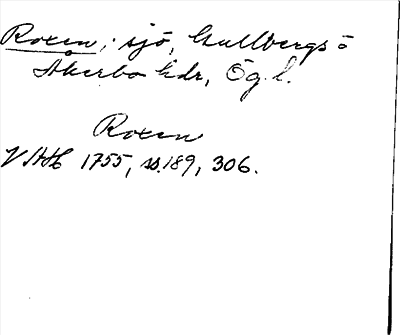 Roxen, sjö, Gullbergs o
Åkerbo hdr, Ög. l.
Roxen
VAH 1755, ss. 189, 306.